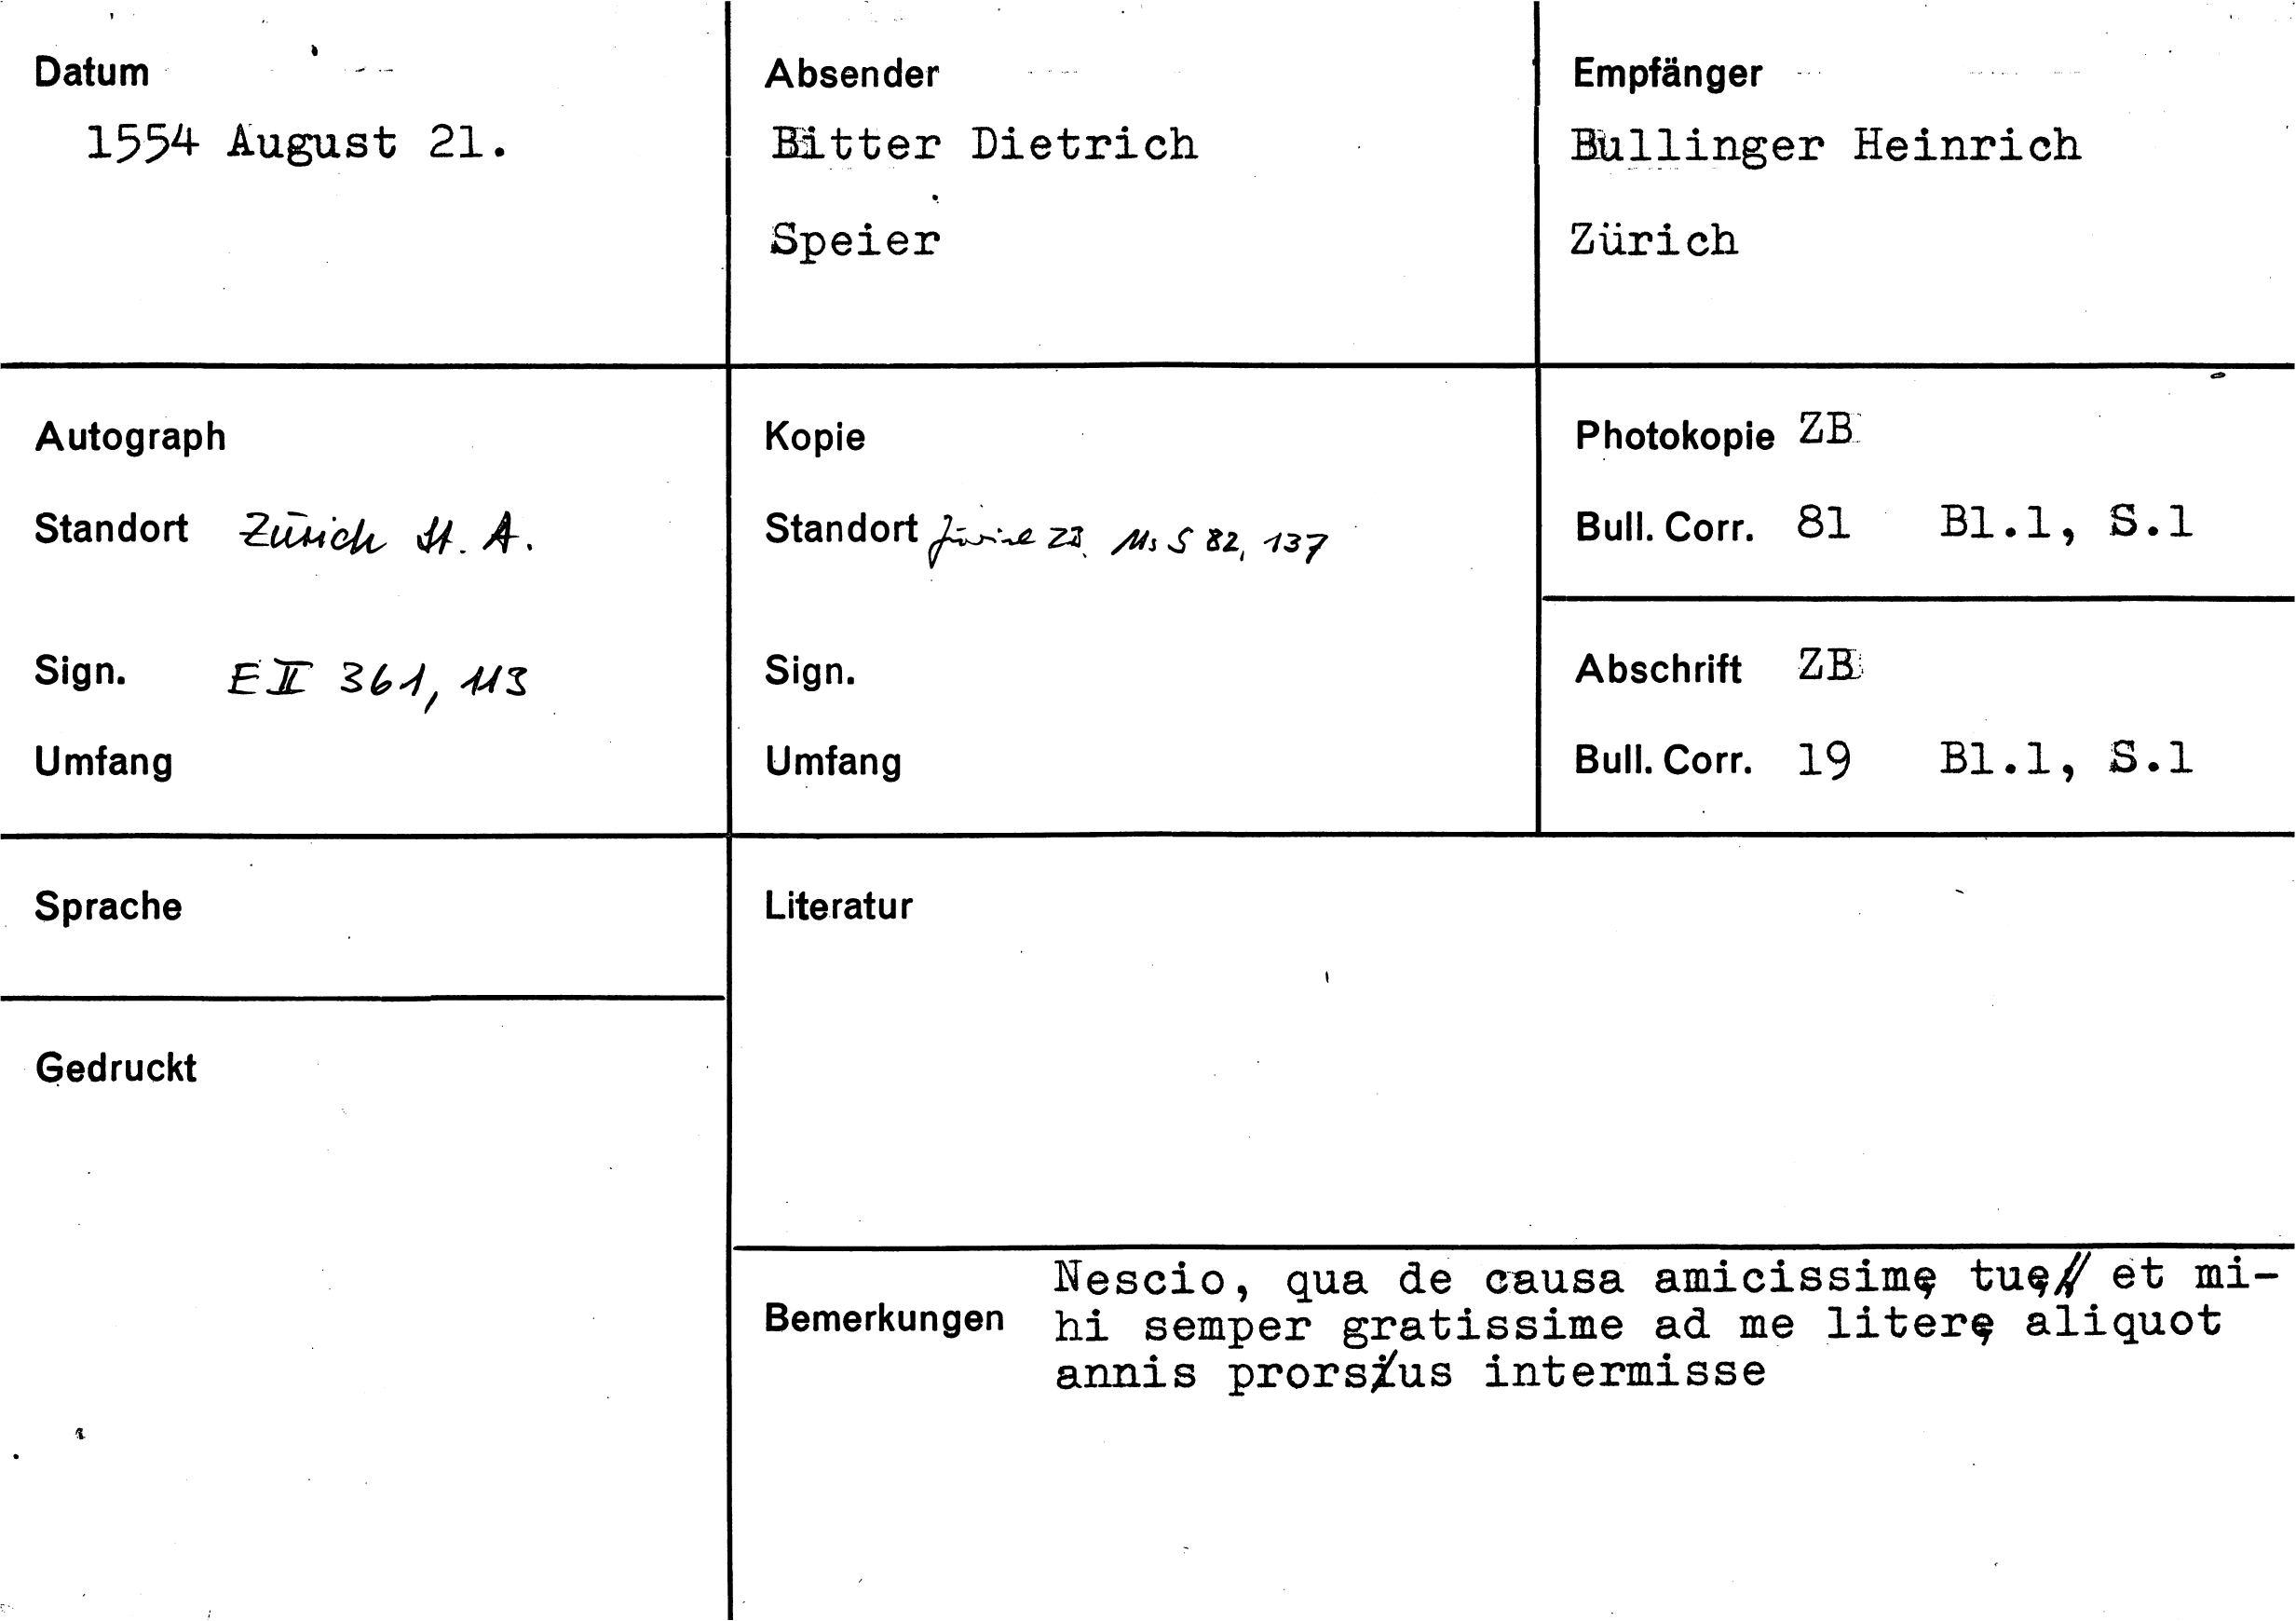 Datum
1554 August 21.
Absender
Bitter Dietrich
Speier
Empfänger
Bullinger Heinrich
Zürich
Autograph
Standort Zürich St. A.
Sign. E II 361, 113
Umfang
Kopie
Standort Zürich ZB. Ms S 82, 137
Sign.
Umfang
Photokopie ZB
Bull. Corr. 81 Bl.1, S.1
Abschrift ZB
Bull. Corr. 19 Bl.1, S.1
Sprache
Gedruckt
Literatur
Bemerkungen
Nescio, qua de causa amicissimę tuę et mi-
hi semper gratissime ad me literę aliquot
annis prorsus intermisse